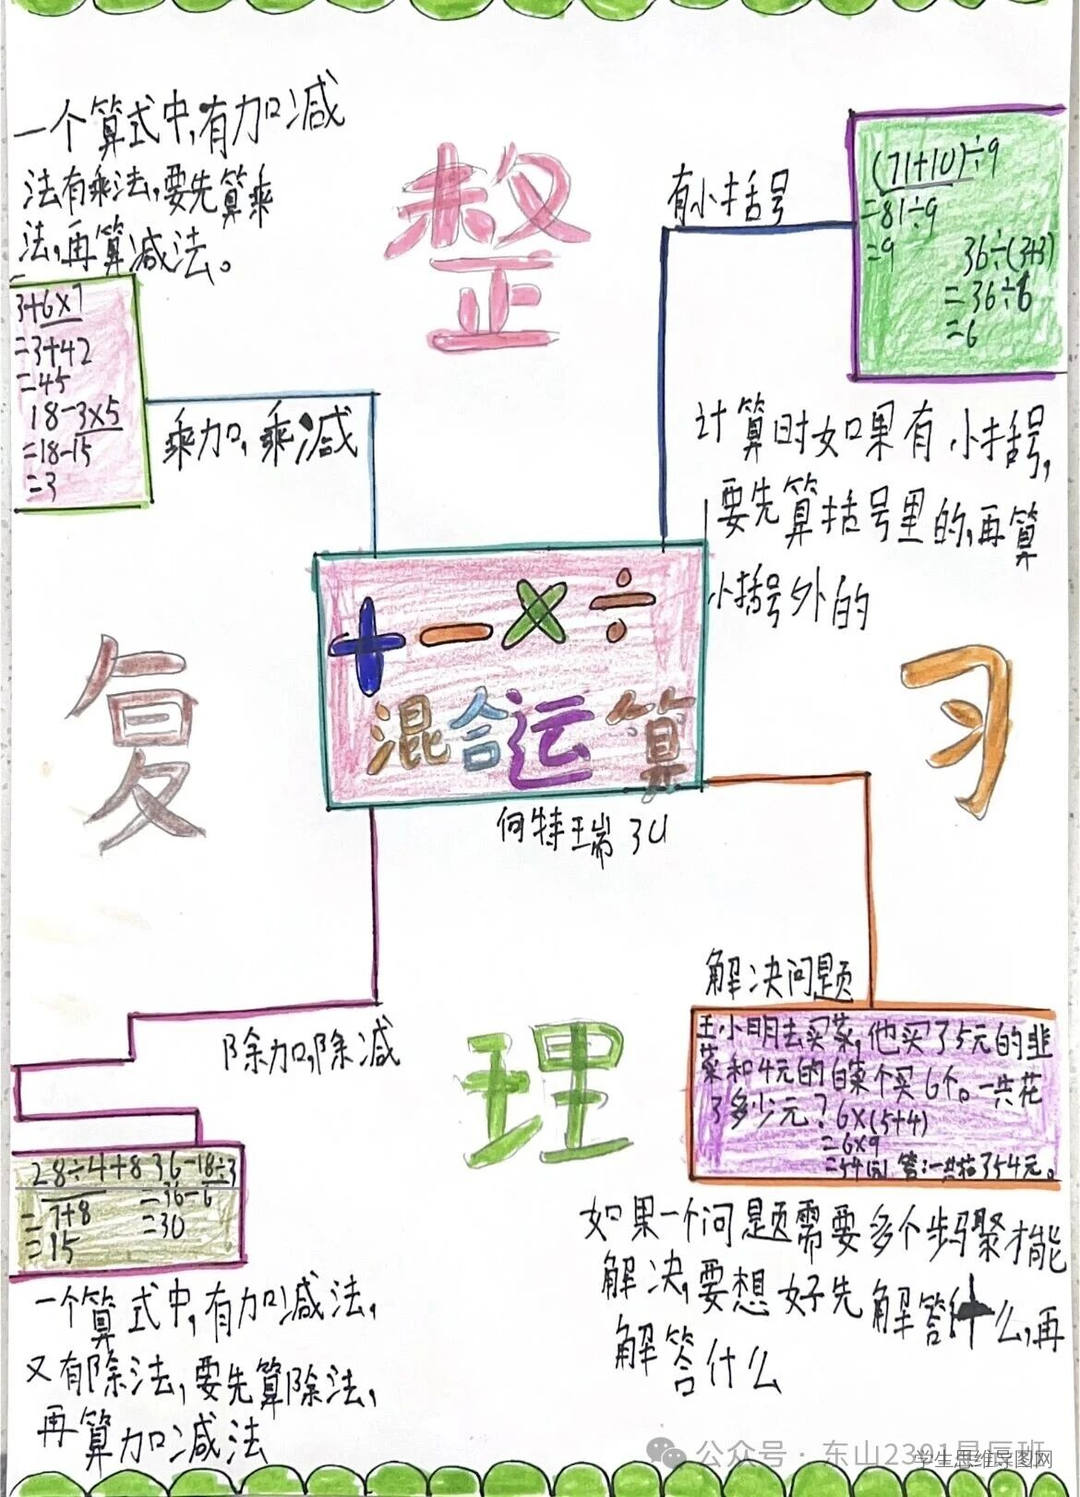 一个算式中,有加减
法有乘法,要先算乘
法,再算减法。
3+6×7
=3+42
=45
18-3×5
=18-15
=3
乘加,乘减
整
有小括号
(71+10)÷9
=81÷9
=9
36÷(3+3)
=36÷6
=6
计算时如果有小括号,
要先算括号里的,再算
小括号外的
+-×÷
混合运算
何特瑞 34
复
习
理
除加,除减
28÷4+8
=7+8
=15
36-18÷3
=36-6
=30
一个算式中,有加减法,
又有除法,要先算除法,
再算加减法
解决问题
王小明去买菜,他买了5元的韭
菜和4元的白菜个买6个。一共花
了多少元?6×(5+4)
=6×9
=54(元) 答:一共花了54元。
如果一个问题需要多个步骤才能
解决,要想好先解答什么,再
解答什么
公众号·东山2391星辰班
学生思维导图网